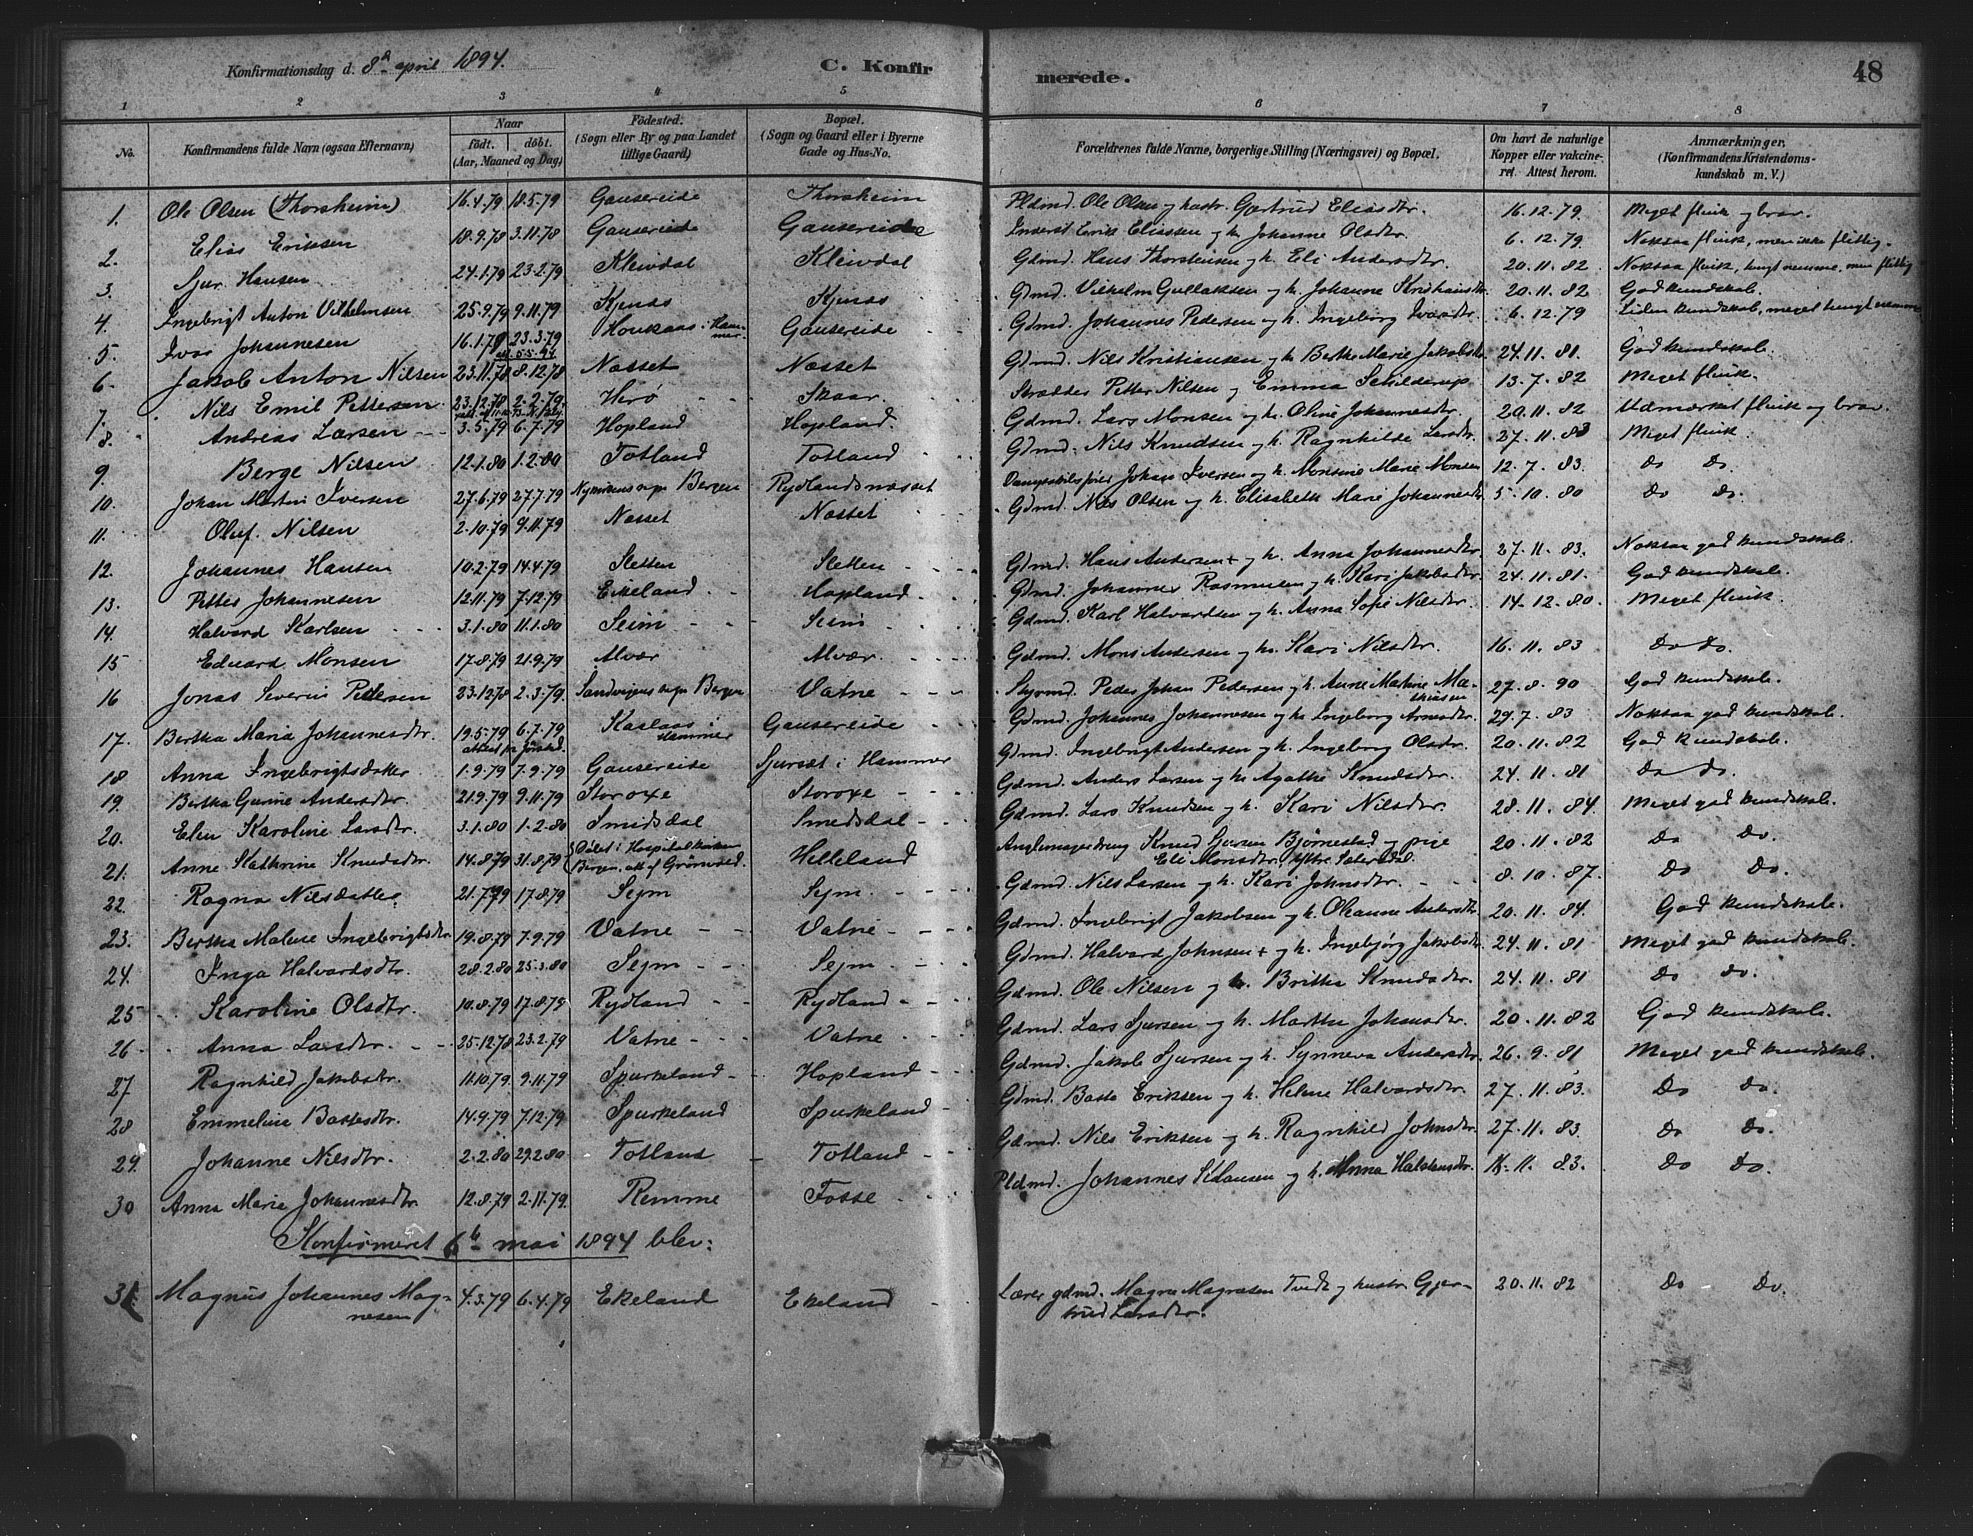 Konfirmationsdag d. 8de april 1894.
C. Konfirmerede.
48
1 2 3 4 5 6 7 8
No.
Konfirmandens fulde Navn (ogsaa Efternavn)
Naar
födt. döbt.
(Aar, Maaned og Dag)
Födested.
(Sogn eller By og paa Landet
tillige Gaard)
Bopæl.
(Sogn og Gaard eller i Byerne
Gade og Hus-No.
Forældrenes fulde Navne, borgerlige Stilling (Næringsvei) og Bopæl.
Om havt de naturlige
Kopper eller vakcine-
ret. Attest herom.
Anmærkninger.
(Konfirmandens Kristendoms-
kundskab m. V.)
1. Ole Olsen (Thorsheim) 16.4.79 18.5.79 Gausereide Thorsheim Pldmd. Ole Olsen og hustr. Gjertrud Eliasdtr. 16.12.79. Meget flink og brav.
2. Elias Eriksen 18.9.78 3.11.78 Gausereide Gausereide Inderst Erik Eliassen og h. Johanne Olsdtr. 6.12.79. Noksaa flink, men ikke flittig.
3. Sjur Hansen 24.1.79 23.2.79 Kleivdal Kleivdal Gdmd. Hans Thorsteinsen og h. Eli Andersdtr. 20.11.82 Noksaa flink, tungt nemme, men flittig
4. Ingebrigt Anton Vilhelmsen 25.9.79 9.11.79 Kjenes Kjenes Gdmd. Vilhelm Gullaksen og h. Johanne Kristiansdtr. 20.11.82 God kundskab.
5. Ivar Johannesen 16.1.79 23.3.79 i Hammer. Gausereide Gdmd. Johannes Pedersen og h. Ingeborg Ivarsdtr. 6.12.79 Liden kundskab, meget tungt nemme
6. Jakob Anton Nilsen 23.11.78 8.12.78 Nesset Nesset Gdmd. Nils Kristiansen og h. Berthe Marie Jakobsdtr. 24.11.81. God kundskab.
7. Nils Emil Pettersen 23.12.78 2.2.79 Herø Skaar. Skrædder Petter Nilsen og Emma Schilderup 13.7.82 Meget flink.
8. Andreas Larsen 3.5.79 6.7.79 Hopland Hopland. Gdmd. Lars Monsen og h. Oline Johannesdtr. 20.11.82 Udmærket flink og brav.
9. Berge Nilsen 12.1.80 1.2.80 Totland Totland Gdmd. Nils Knudsen og h. Ragnhilde Larsdtr. 27.11.83 Meget flink.
10. Johan Martin Iversen 27.6.79 27.7.79 Nykirkens sogn Bergen Rydlandsnesset Johan Iversen og h. Monsine Marie Monsen 12.7.83. Do Do.
11. Oluf Nilsen 2.10.79 9.11.79 Nesset Nesset Gdmd. Nils Olsen og h. Elisabeth Marie Johannesdtr. 5.10.80 Do Do.
12. Johannes Hansen 10.2.79 14.4.79 Sletten Sletten Gdmd. Hans Andersen + og h. Anna Johannesdtr. 27.11.83. Noksaa god kundskab.
13. Petter Johannesen 12.11.79 7.12.79 Eikeland Hopland Gdmd. Johannes Rasmusen og h. Kari Jakobsdtr. 24.11.81. God kundskab.
14. Halvard Karlsen 3.1.80 11.1.80 Seim Seim Gdmd. Karl Halvardsen og h. Anna Sofie Nilsdtr. 14.12.80. Meget flink.
15 Eduard Monsen 17.8.79 21.9.79 Alvær Alvær. Gdmd. Mons Andersen og h. Kari Nilsdtr. 16.11.83 Do Do.
16 Jonas Severin Pedersen 23.12.78 2.3.79. Sandvigens sogn Bergen Vatne Styrmd. Peder Johan Pedersen og h. Anne Martine Ma-
thiasen 27.8.90 God kundskab.
17. Bertha Maria Johannesdtr. 19.5.79 6.7.79 i Hammer Gausereide Gdmd. Johannes Johannesen og h. Ingeborg Arnesdtr. 29.7.83 Noksaa god kundskab.
18 Anna Ingebrigtsdatter 1.9.79 7.9.79 Gausereide i Hammer Gdmd. Ingebrigt Andersen og h. Ingeborg Olsdtr. 20.11.82 God kundskab.
19. Bertha Gurine Andersdtr. 21.9.79 9.11.79 Storoxe Storoxe Gdmd. Anders Larsen og h. Agathe Knudsdtr. 24.11.81 Do Do.
20. Elen Karoline Larsdtr. 3.1.80 1.2.80 Smidsdal Smedsdal Gdmd. Lars Knudsen og h. Kari Nilsdtr. 28.11.84. Meget god kundskab.
21. Anne Kathrine Knudsdtr. 14.8.79 31.8.79 Döbt i Hospitalkirken
Bergen, att. af Grönvold. Helleland Knud Sjursen Bjørnestad og pige
Eli Monsdtr. 20.11.82 Do Do.
22. Ragna Nilsdatter 21.7.79 17.8.79 Sejm Sejm. Gdmd. Nils Larsen og h. Kari Johnsdtr. 8.10.87. Do Do.
23. Bertha Malene Ingebrigtsdtr. 19.8.79 7.9.79 Vatne Vatne Gdmd. Ingebrigt Jakobsen og h. Oleanne Andersdtr. 20.11.84. God kundskab.
24. Inga Halvardsdtr. 28.2.80 25.3.80 Sejm Sejm. Gdmd. Halvard Johnsen + og h. Ingebjørg Jakobsdtr. 24.11.81 Meget god kundskab.
25 Karoline Olsdtr. 10.8.79 17.8.79 Rydland Rydland Gdmd. Ole Nilsen og h. Britha Knudsdtr. 24.11.81 Do Do.
26 Anna Larsdtr. 25.12.78 23.2.79 Vatne Vatne Gdmd. Lars Sjursen og h. Martha Johansdtr. 20.11.82 God kundskab.
27 Ragnhild Jakobsdtr. 11.10.79. 9.11.79 Spurkeland Hopland Gdmd. Jakob Sjursen og h. Synneva Andersdtr. 26.9.81 Meget god kundskab.
28 Emmeline Bastesdtr. 14.9.79 7.12.79 Spurkeland Spurkeland Gdmd. Baste Eriksen og h. Helene Halvardsdtr. 27.11.83. Do Do.
29. Johanne Nilsdtr. 2.2.80 29.2.80 Totland Totland Gdmd. Nils Eriksen og h. Ragnhild Johnsdtr. 27.11.83. Do Do.
30 Anna Marie Johannesdtr. 12.8.79 2.11.79. Remme Fosse Pldmd. Johannes Klausen og h. Anna Halstensdtr. 11.83. Do Do.
Konfirmeret 6te mai 1894 blev:
31. Magnus Johannes Mag-
nesen 4.3.79 6.4.79 Ekeland Ekeland Lærer gdmd. Magne Magnesen Tveit og hustr. Gjer-
trud Larsdtr. 20.11.82 Do Do.